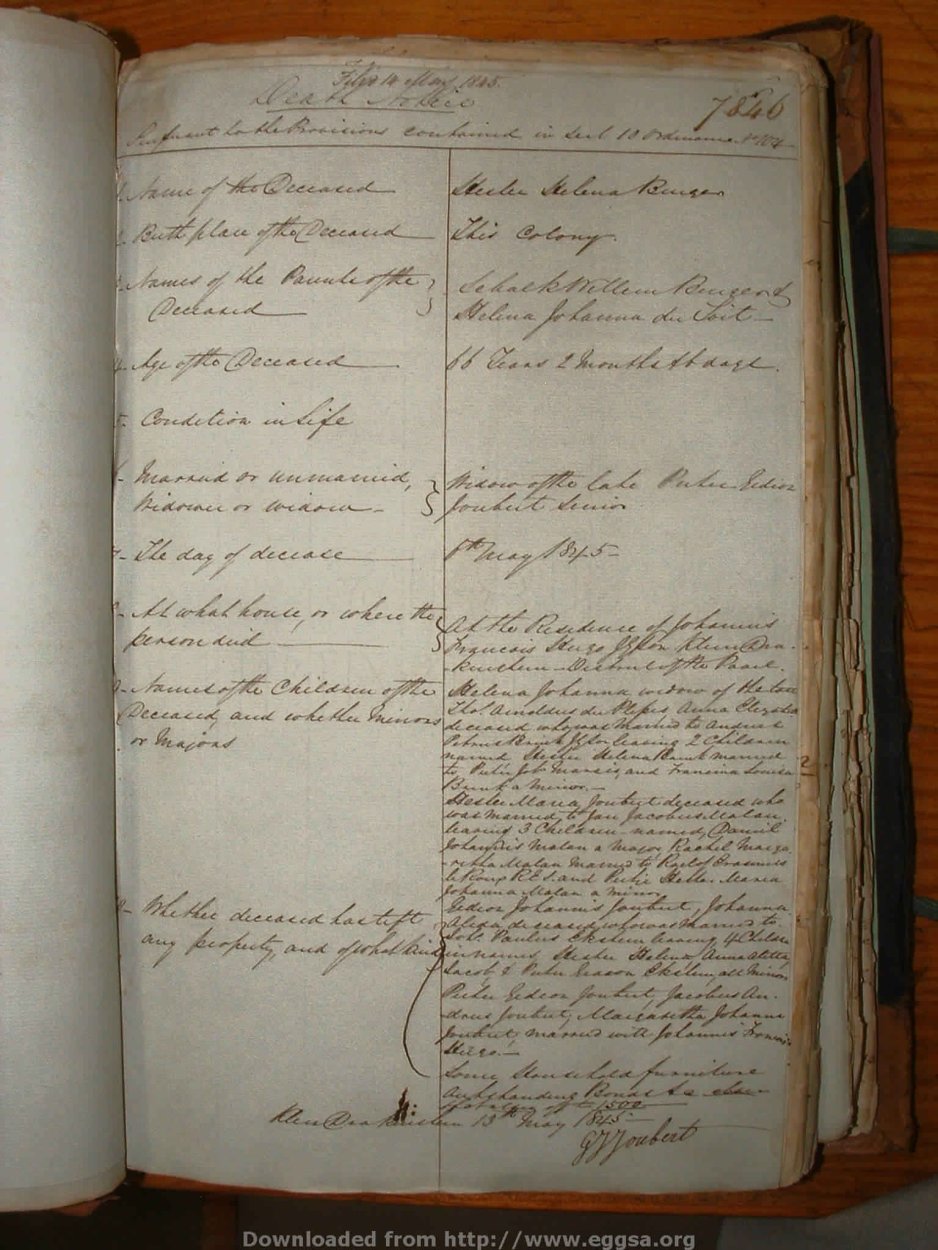 Filed 14 May 1845
Death Notice
7846
Pursuant to the Provisions contained in Sect 10 Ordinance No 104
1. Name of the Deceased
Hester Helena Burger
2. Birth place of the Deceased
This Colony.
3. Names of the Parents of the
Deceased
Schalk Willem Burger &
Helena Johanna du Toit
4. Age of the Deceased
66 Years 2 Months & days.
5. Condition in Life
6. Married or unmarried,
Widower or widow
Widow of the late Pieter Gedion
Joubert Senior
7. The day of decease
8th May 1845
8. At what house, or where the
person died
At the Residence of Johannis
Francois Hugo Klein Dra-
kenstein District of the Paarl.
9. Names of the Children of the
Deceased, and whether minors
or Majors
Helena Johanna widow of the late
Ths. Arnoldus du Plesis, Anna Elizabeth
deceased who was Married to Andries
Petrus leaving 2 Children
named Hester Helena married
to Pieter Jab Marais, and Francina Louisa
a Minor.
Hester Maria Joubert deceased who
was Married to Jan Jacobus Malan,
leaving 3 Children named, Daniel
Johannis Malan a Major Rachel Marga-
retha Malan Married to Roelof Erasmus
le Roux and Hester Maria
Johanna Malan a minor
Gedion Johannis Joubert, Johanna
deceased who was Married to
Paulus Eksteen leaving 4 Children
names, Hester Helena, Anna Aletta,
Jacob & Pieter Eksteen, all Minors
Pieter Gedeon Joubert, Jacobus An-
dries Joubert, Margaretha Johanna
Joubert, married with Johannis Francois
Hugo.
10. Whether deceased has left
any property, and of what kind
Some Household furniture
outstanding Bonds &c
1500
Klein Drakenstein 13th May 1845
G J Joubert
Downloaded from http://www.eggsa.org